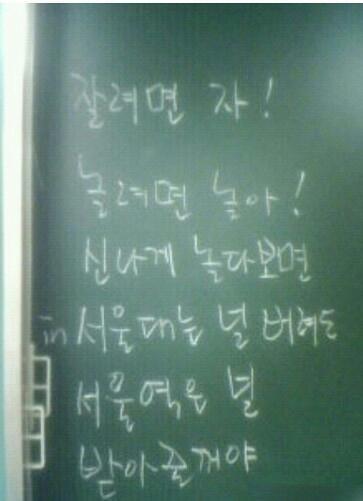 잘려면 자!
놀려면 놀아!
신나게 놀다보면
in 서울대는 널 버려도
서울역은 널
받아줄꺼야